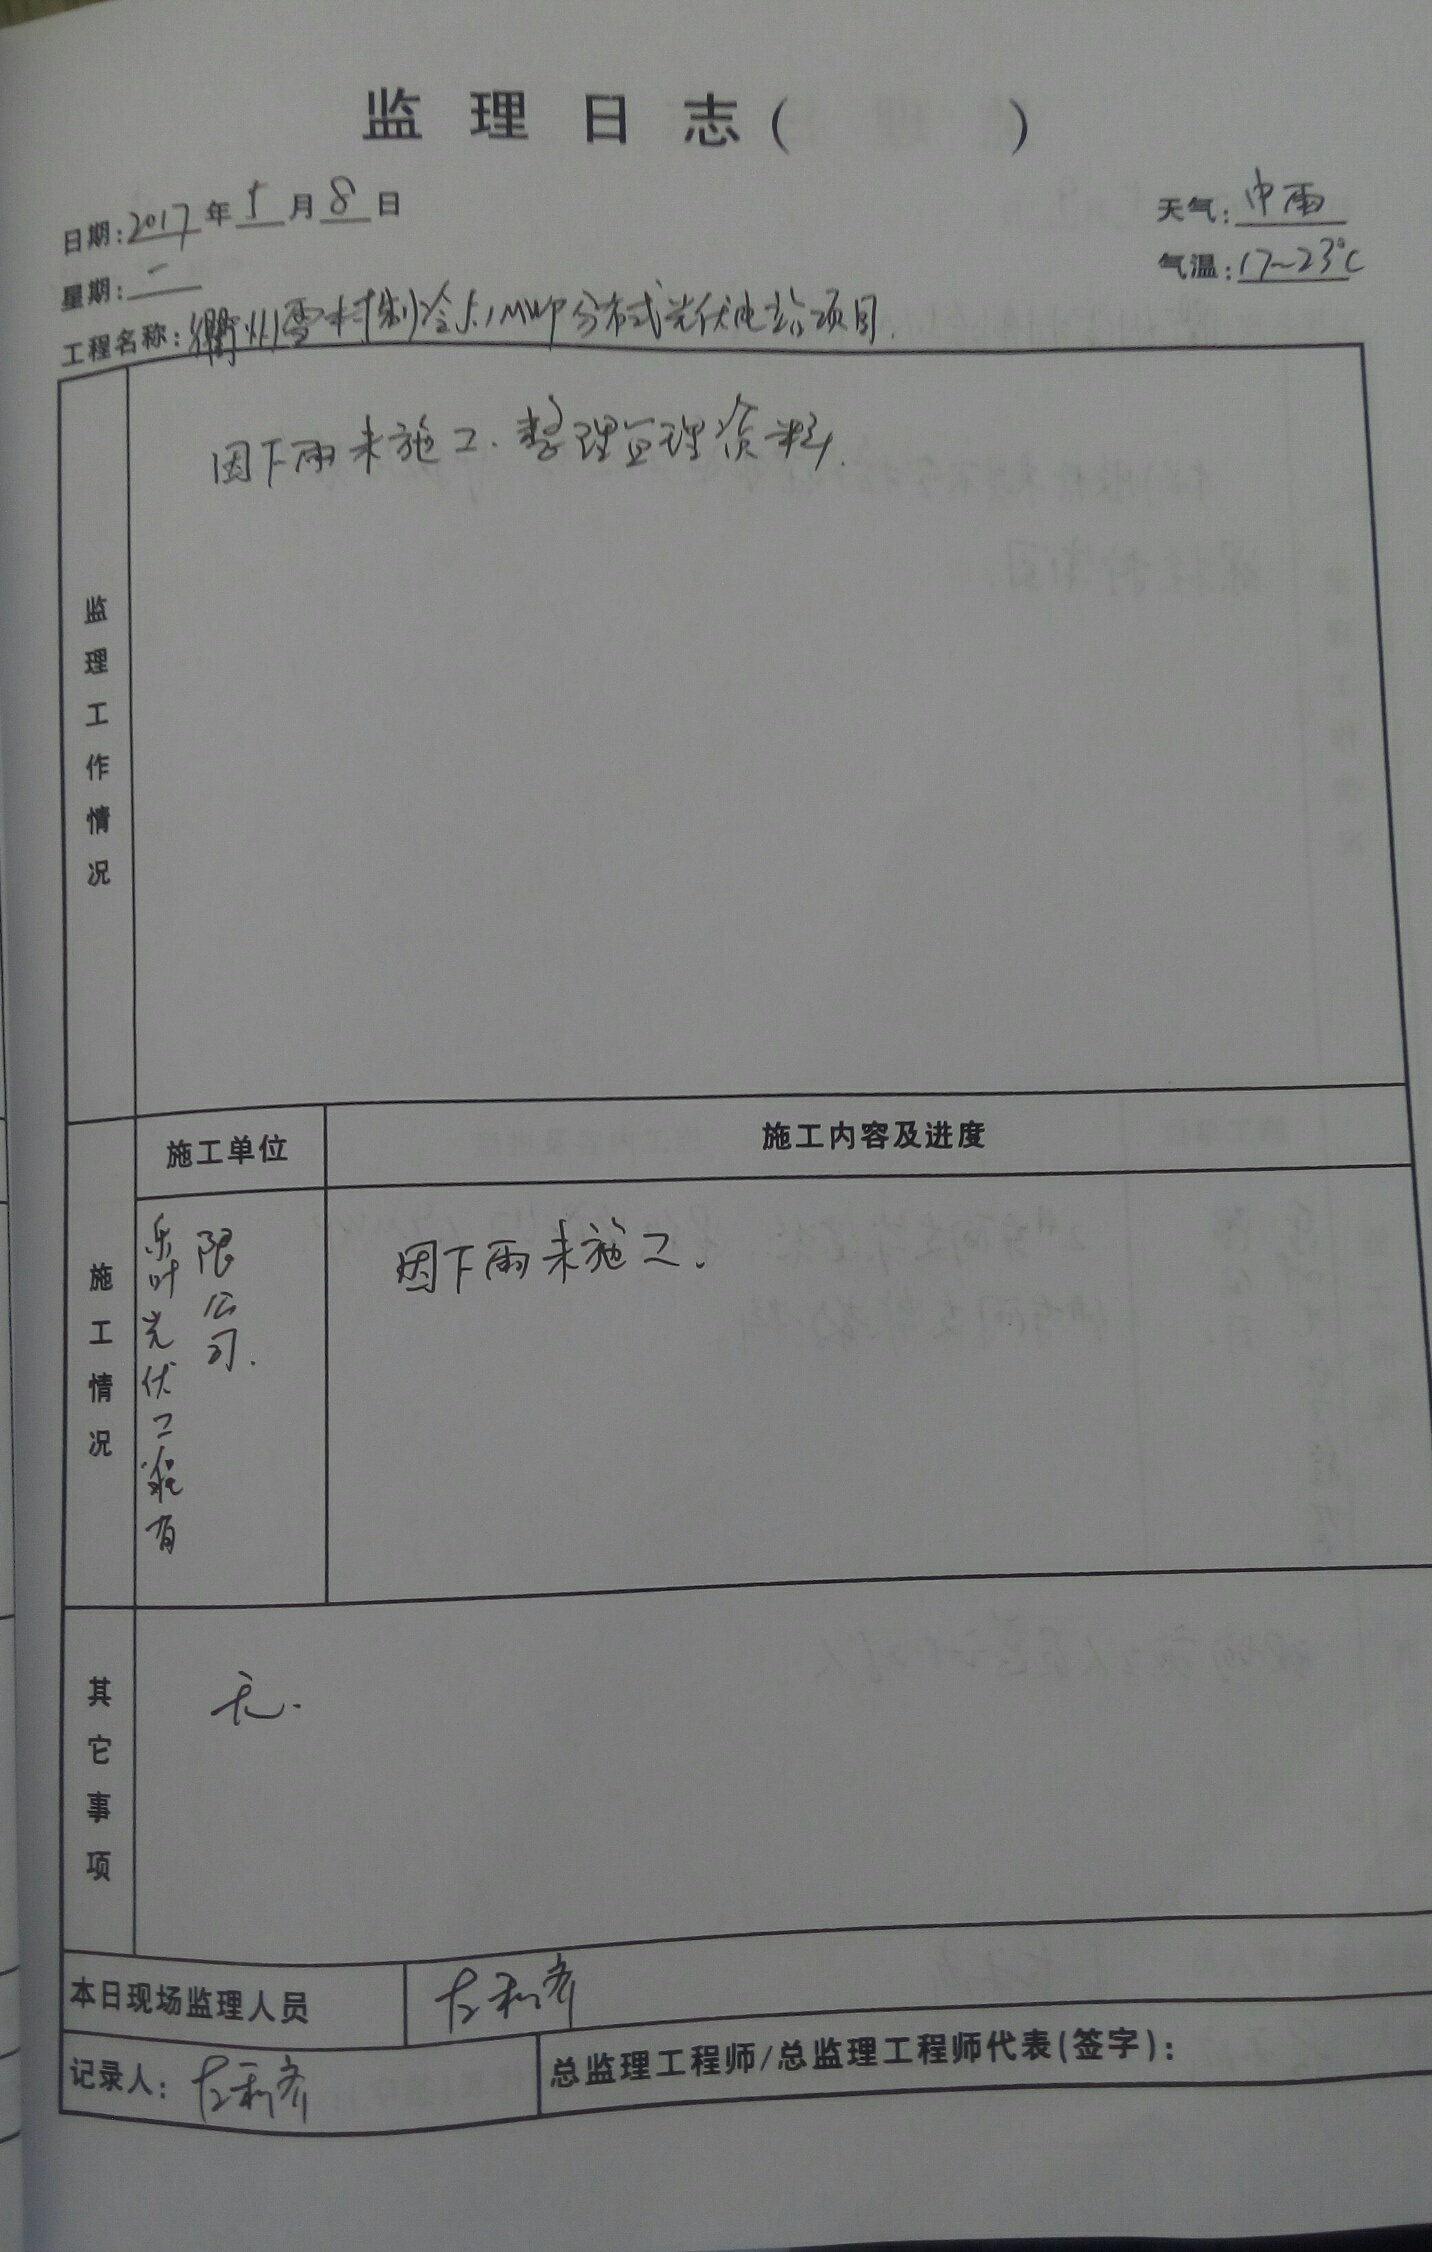 监理日志(          )
日期:2017年5月8日
天气:中雨
星期:一
气温:17~23℃
工程名称:衢州雪村制冷5.1MWP分布式光伏电站项目.
监理工作情况
因下雨未施工.整理监理资料.
施工情况
施工单位
施工内容及进度
乐叶光伏工程有
限公司.
因下雨未施工.
其它事项
无.
本日现场监理人员
记录人:
总监理工程师/总监理工程师代表(签字):